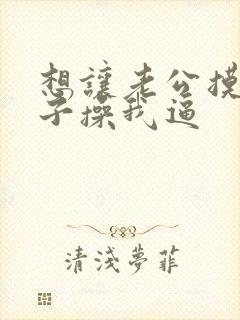 想讓老公摸
子操我逼
清淺夢菲